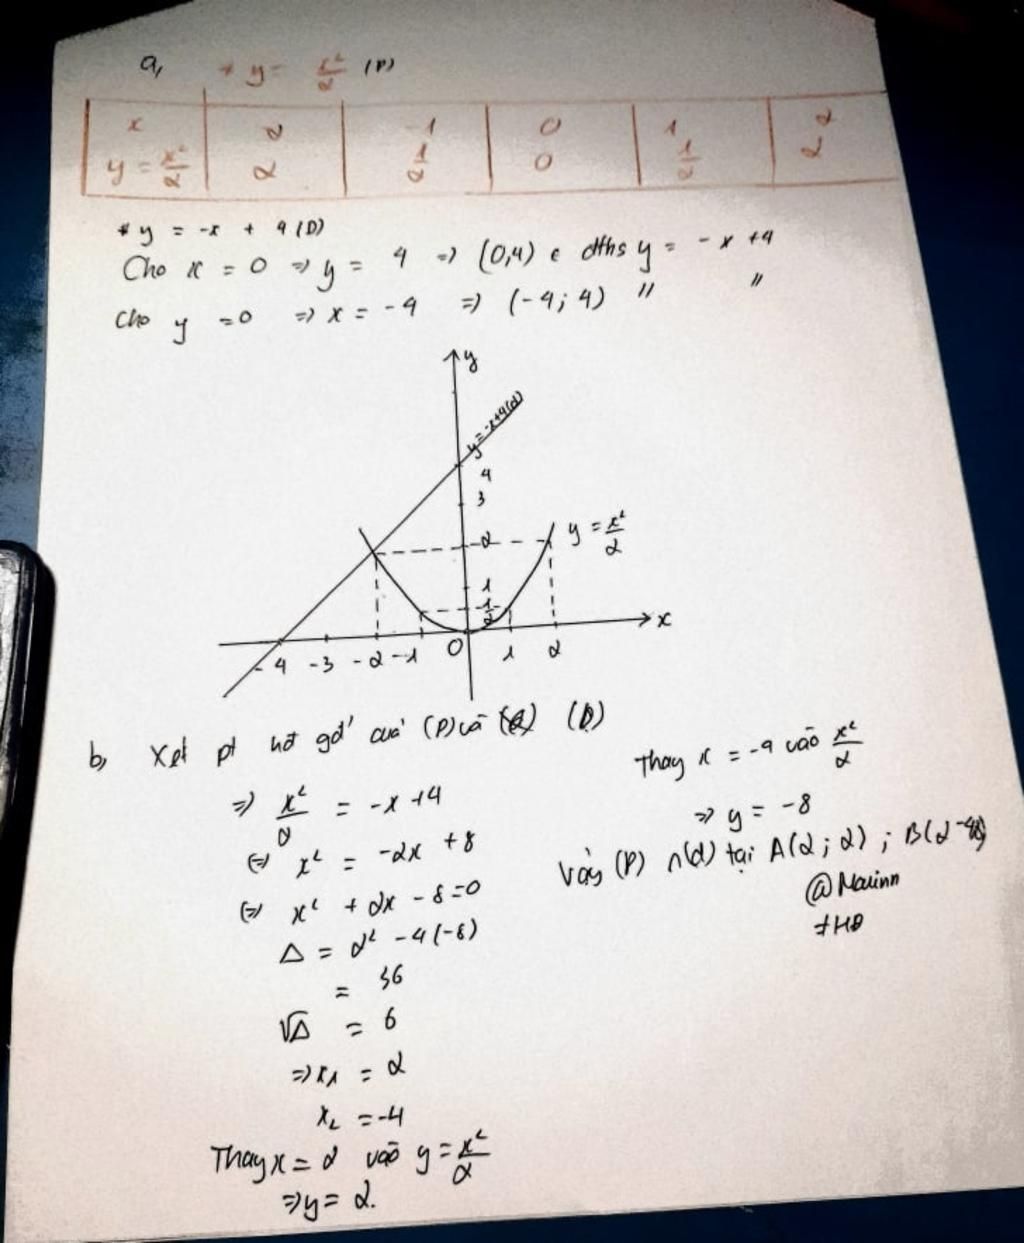 a, * y = x²/2 (P)
x 2 -1 0 1 2
y = x²/2 2 1/2 0 1/2 2
* y = -x + 4 (D)
Cho x = 0 => y = 4 => (0,4) ∈ đths y = -x +4
Cho y =0 => x = -4 => (-4; 4) " "
y
y = -x+4(d)
4
3
2 y = x²/2
1
1/2
-4 -3 -2 -1 O 1 2 x
b, Xét pt hđ gđ' của (P) và (D)
=> x²/2 = -x +4
(=) x² = -2x +8
(=) x² + 2x - 8 =0
Δ = 2² -4(-8)
= 36
√Δ = 6
=> x1 = 2
x2 = -4
Thay x = 2 vào y = x²/2
=> y = 2.
Thay x = -4 vào x²/2
=> y = -8
Vậy (P) ∩(d) tại A(2; 2) ; B(2
@Marinn